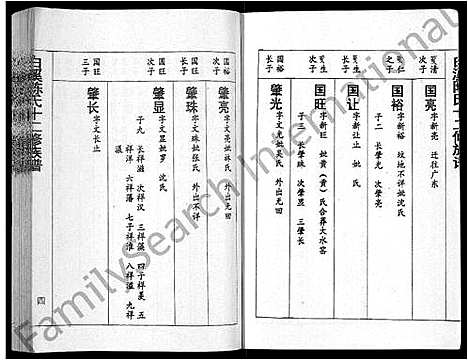 夏清
次子
国亮
字新亮 迁往广东
夏仁
之子
国裕
字新裕 歿地不详妣沈氏
子二 长肇光 次肇亮
夏生
长子
国让
字新让 止 妣 氏
夏生
次子
国旺
字新旺 妣黄(黄)氏合葬大水客
子三 长肇珠 次肇显 三肇长
国裕
长子
肇光
字文光妣吴氏 外出无回
国裕
次子
肇亮
字文亮妣林氏 外出无回
国旺
长子
肇珠
字文珠妣张氏 外出不详
国旺
次子
肇显
字文显妣罗 沈氏
子九 长祥滋 次祥汉 三祥藻 四子祥美 五
祥洋 六祥藩 七子祥淮 八祥滥 九祥
国旺
三子
肇长
字文长止
白溪陈氏十二修族谱
四
FamilySearch International